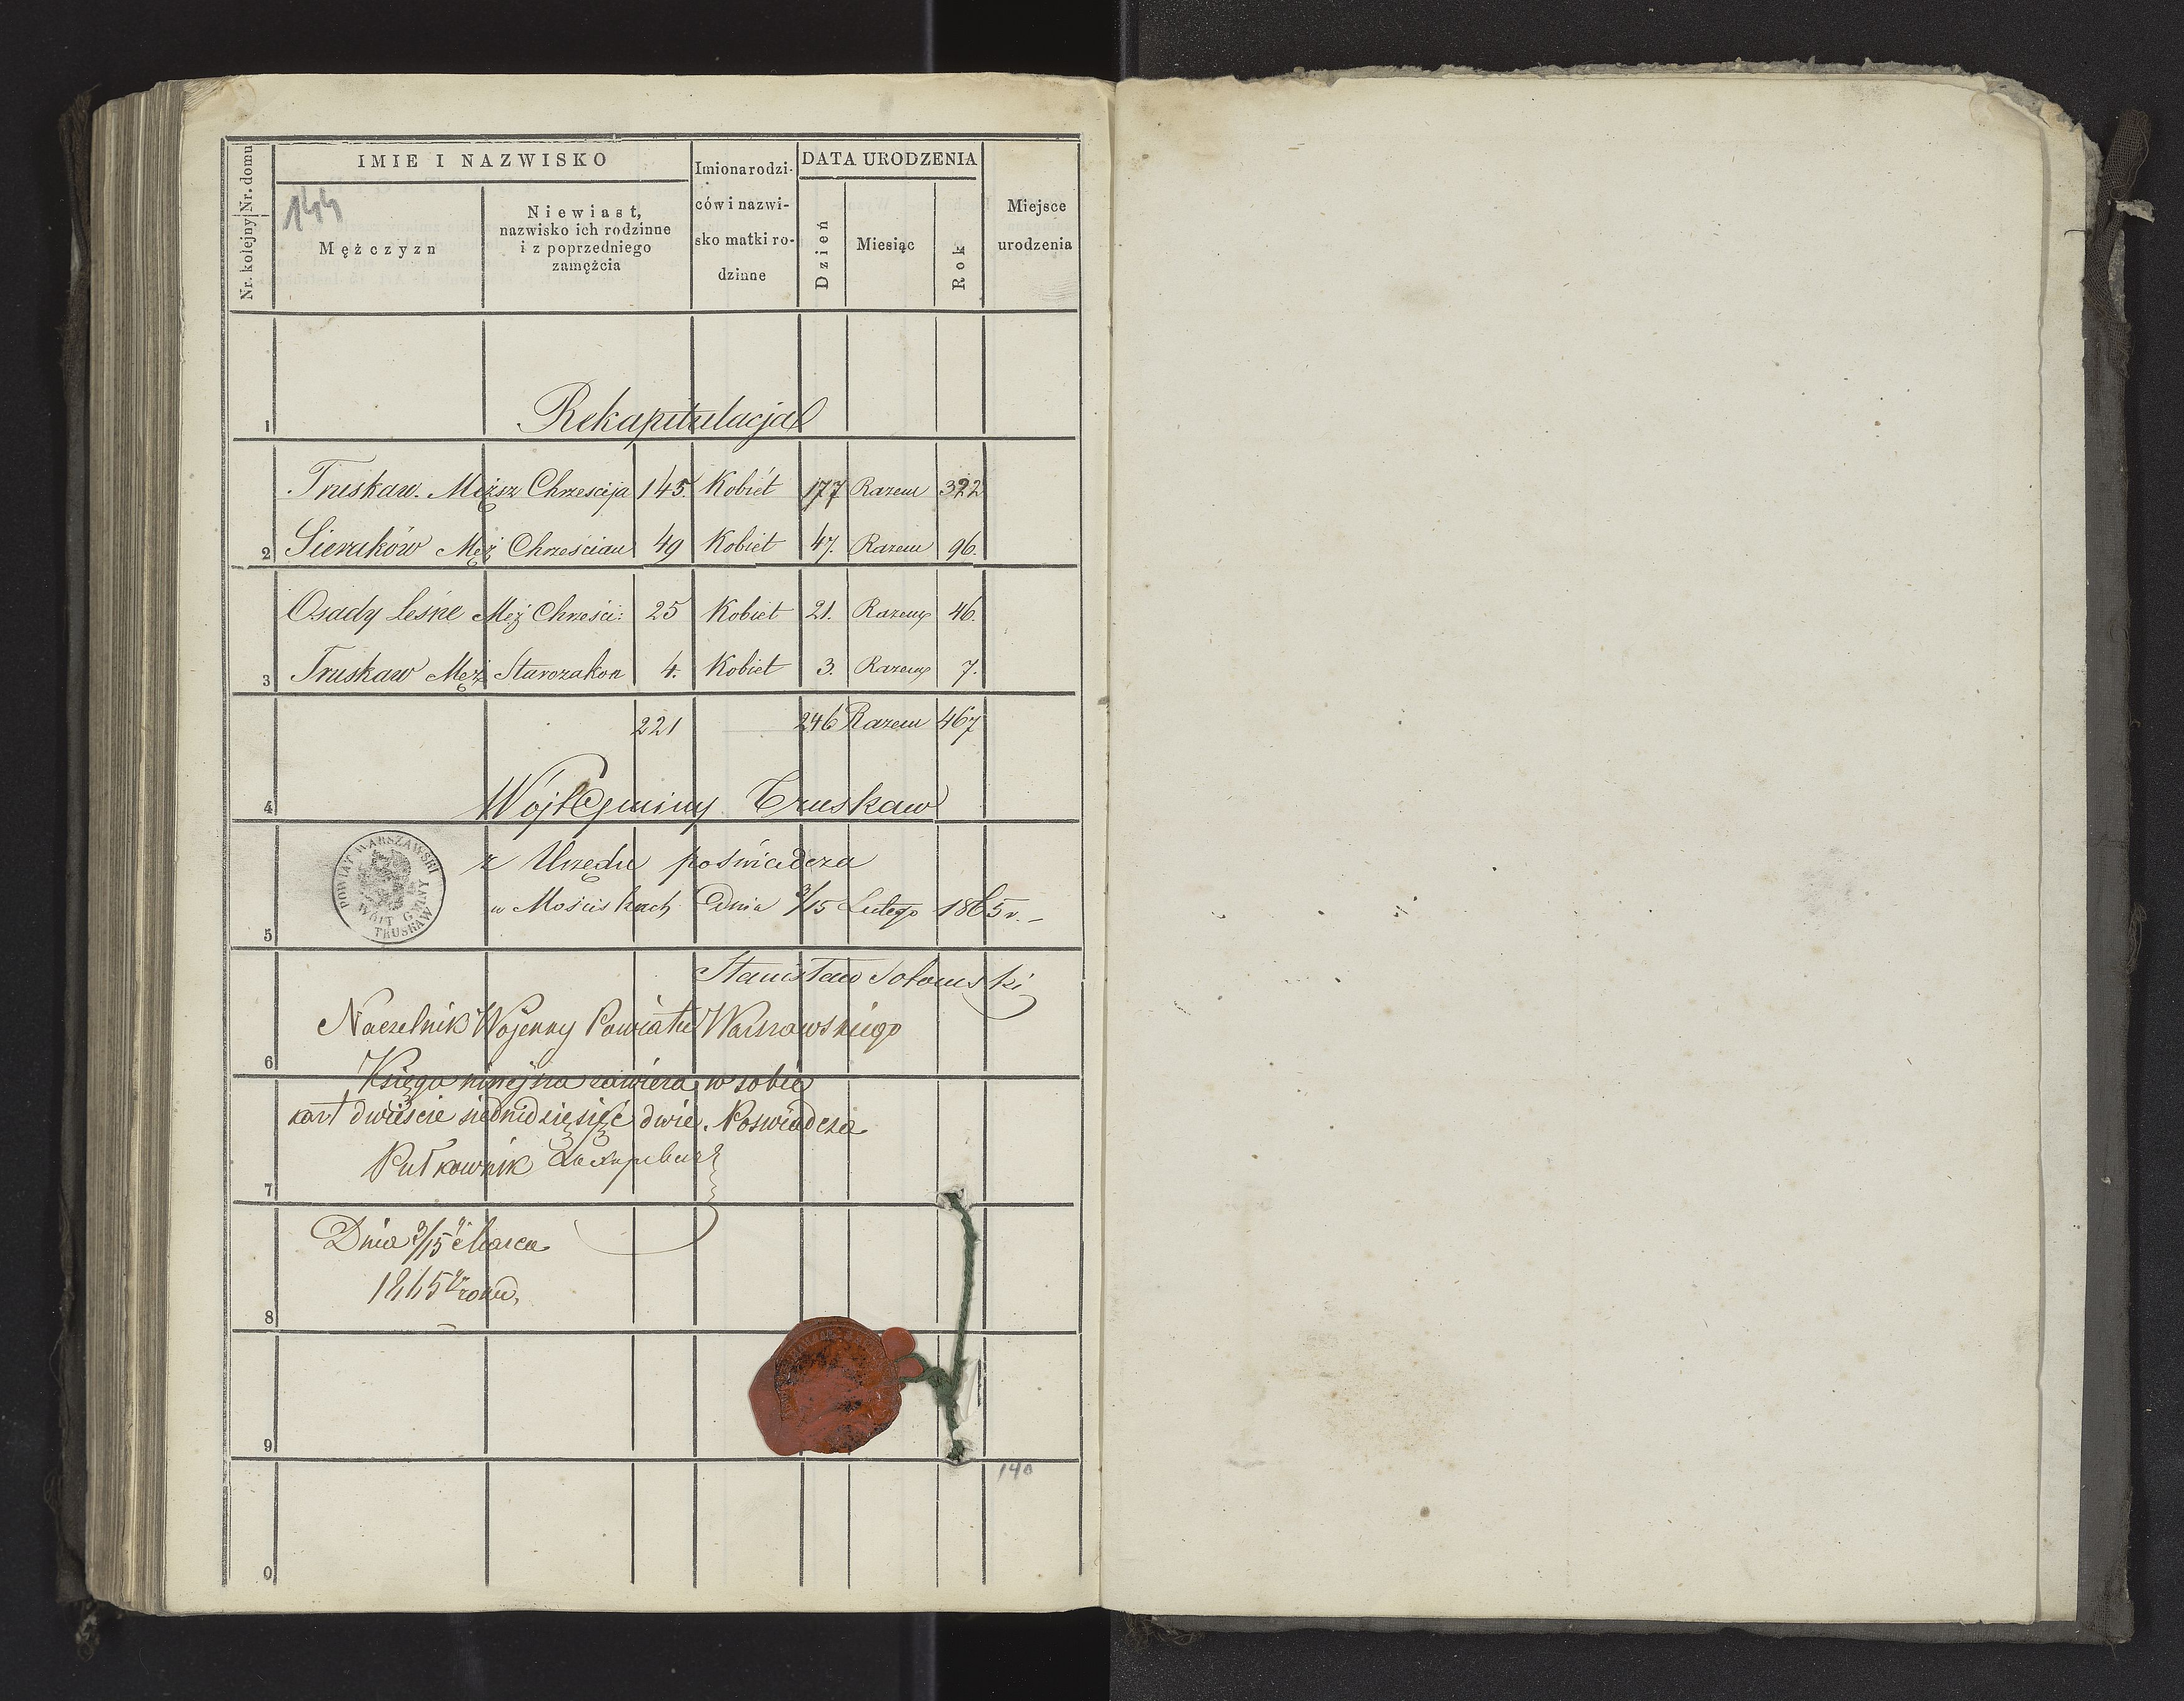 Nr. kolejny Nr. domu
IMIE I NAZWISKO
144
Mężczyzn
Niewiast,
nazwisko ich rodzinne
i z poprzedniego
zamężcia
Imiona rodzi-
ców i nazwi-
sko matki ro-
dzinne
DATA URODZENIA
Dzień
Miesiąc
Rok
Miejsce
urodzenia
1
Rekapitulacja
Truskaw. Męższ Chrzescija 145. Kobiet 177 Razem 322
2 Sieraków Męż Chrześcian 49 Kobiet 47. Razem 96.
Osady Leśne Męż Chrześci: 25 Kobiet 21. Razem 46.
3 Truskaw Męż Starozakon 4. Kobiet 3. Razem 7.
221 246 Razem 467
4 Wójt Gminy Truskaw
POWIAT WARSZAWSKI
WÓJT GMINY
TRUSKAW
z Urzędu poświadcza
w Mościskach Dnia 3/15 Lutego 1865 r. –
5
Stanisław
Naczelnik Wojenny Powiatu Warszawskiego
6
Księga niniejsza zawiera w sobie
kart dwieście siedmdziesięć dwie. Poswiadcza
Pułkownik
7
Dnia 3/15 Marca
1865 roku,
8
9
140
0